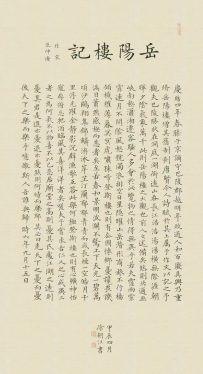 岳陽樓記
北宋
范仲淹
慶曆四年春滕子京謫守巴陵郡越明年政通人和百廢具興乃重
修岳陽樓增其舊制刻唐賢今人詩賦于其上屬予作文以記之予
觀夫巴陵勝狀在洞庭一湖銜遠山吞長江浩浩湯湯橫無際涯朝
暉夕陰氣象萬千此則岳陽樓之大觀也前人之述備矣然則北通巫
峽南極瀟湘遷客騷人多會于此覽物之情得無異乎若夫霪雨霏
霏連月不開陰風怒號濁浪排空日星隱耀山岳潛形商旅不行檣
傾楫摧薄暮冥冥虎嘯猿啼登斯樓也則有去國懷鄉憂讒畏譏
滿目蕭然感極而悲者矣至若春和景明波瀾不驚上下天光一碧萬
頃沙鷗翔集錦鱗游泳岸芷汀蘭郁郁青青而或長煙一空皓月千
里浮光躍金靜影沉璧漁歌互答此樂何極登斯樓也則有心曠神怡
寵辱偕忘把酒臨風其喜洋洋者矣嗟夫予嘗求古仁人之心或異二
者之為何哉不以物喜不以己悲居廟堂之高則憂其民處江湖之遠則
憂其君是進亦憂退亦憂然則何時而樂耶其必曰先天下之憂而憂
後天下之樂而樂乎噫微斯人吾誰與歸時六年九月十五日
甲辰四月
徐朝江書